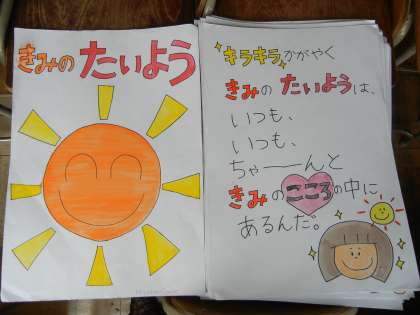 きみの たいよう
キラキラ かがやく
きみの たいようは、
いつも、
いつも、
ちゃーーんと
きみの こころの中に
あるんだ。